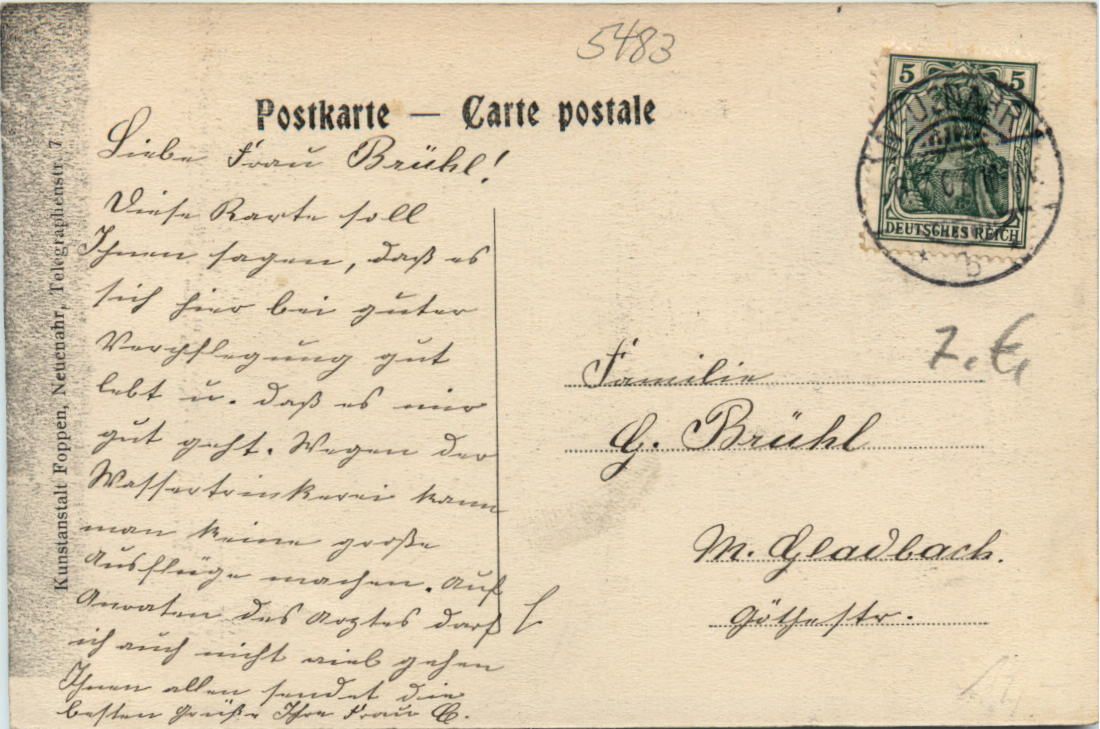 5483
Postkarte — Carte postale
5 5
DEUTSCHES REICH
NEUENAHR
b
Liebe Frau Brühl!
Diese Karte soll
Ihnen sagen, daß es
sich hier bei guter
Verpflegung gut
lebt u. daß es mir
gut geht. Wegen der
Wassertrinkerei kann
man keine große
Ausflüge machen. Auf
Anraten des Arztes darf
ich auch nicht viel gehen
Ihnen allen sendet die
besten Grüße Ihre Frau C.
7.€
Familie
G. Brühl
M. Gladbach.
Göthestr.
Kunstanstalt Foppen, Neuenahr, Telegraphenstr. 7